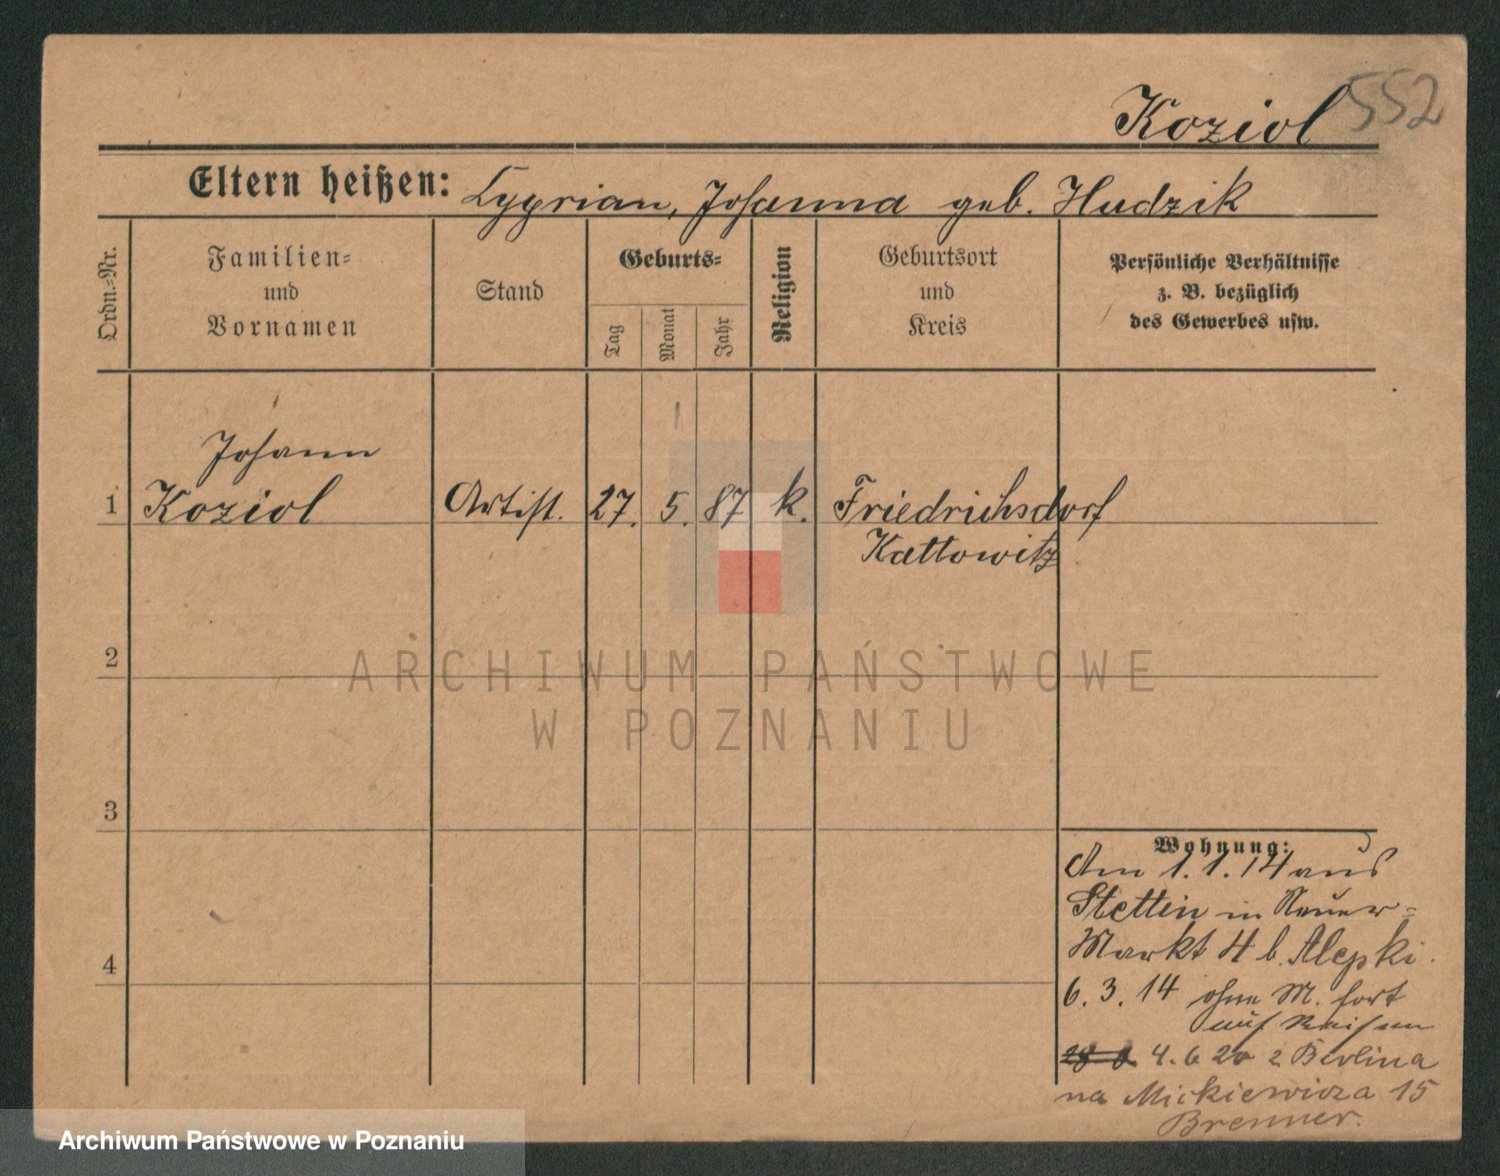 Koziol 552
Eltern heißen: Cyprian, Johanna geb. Hudzik
Ordn.-Nr.
Familien-
und
Vornamen
Stand
Geburts-
Tag
Monat
Jahr
Religion
Geburtsort
und
Kreis
Persönliche Verhältnisse
z. B. bezüglich
des Gewerbes usw.
Johann
1 Koziol Artist. 27. 5. 87 k. Friedrichsdorf
Kattowitz
2
3
4
Wohnung:
Am 1.1.14 aus
Stettin in Neuer-
Markt 4 b. Alepki.
6.3.14 ohne M. fort
auf Reisen
4.6 20 z Berlina
na Mickiewicza 15
Brenner.
ARCHIWUM PAŃSTWOWE
W POZNANIU
Archiwum Państwowe w Poznaniu